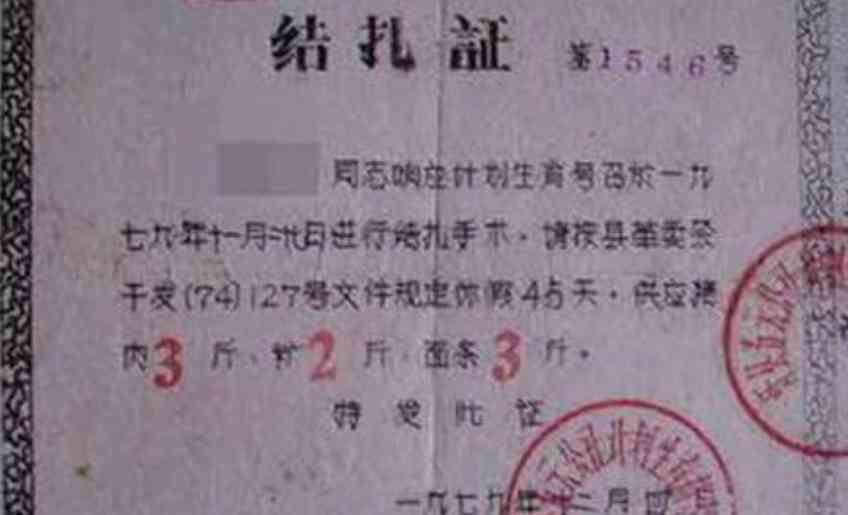 结扎证 第1546号
同志响应计划生育号召于一九
七九年十一月 日进行结扎手术。请按县革委会
干发(74)127号文件规定休假45天。供应猪
肉3斤、 2斤、面条3斤。
特发此证
一九七九年十二月四